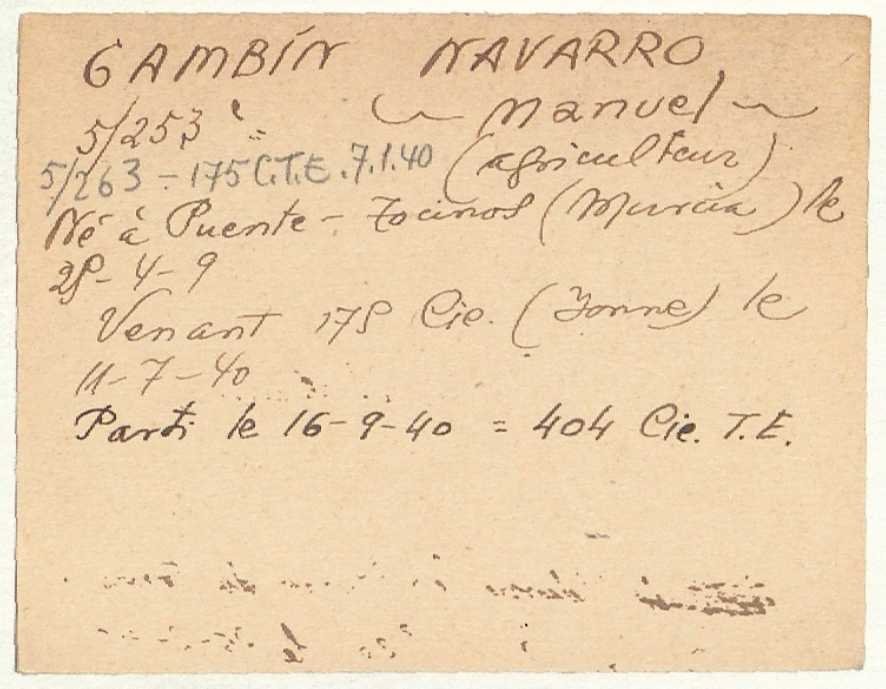 GAMBÍN NAVARRO
5/253 = Manuel
5/263 - 175 C.T.E. 7.1.40 (agriculteur)
Né à Puente - Tocinos (Murcia) le
28-4-9
Venant 175 Cie. (Yonne) le
11-7-40
Parti le 16-9-40 = 404 Cie. T.E.